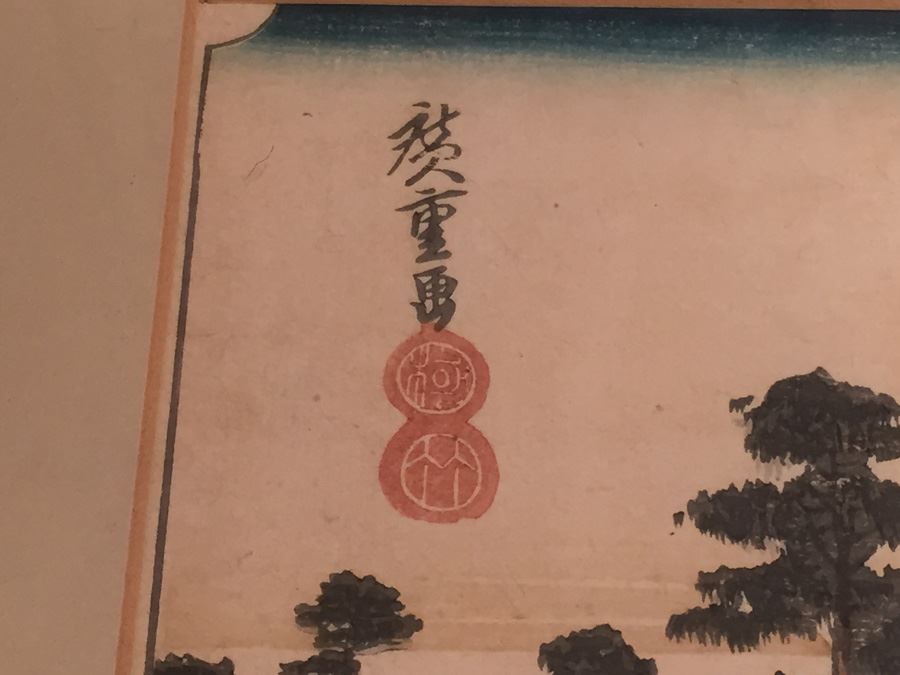 廣重画
極
竹